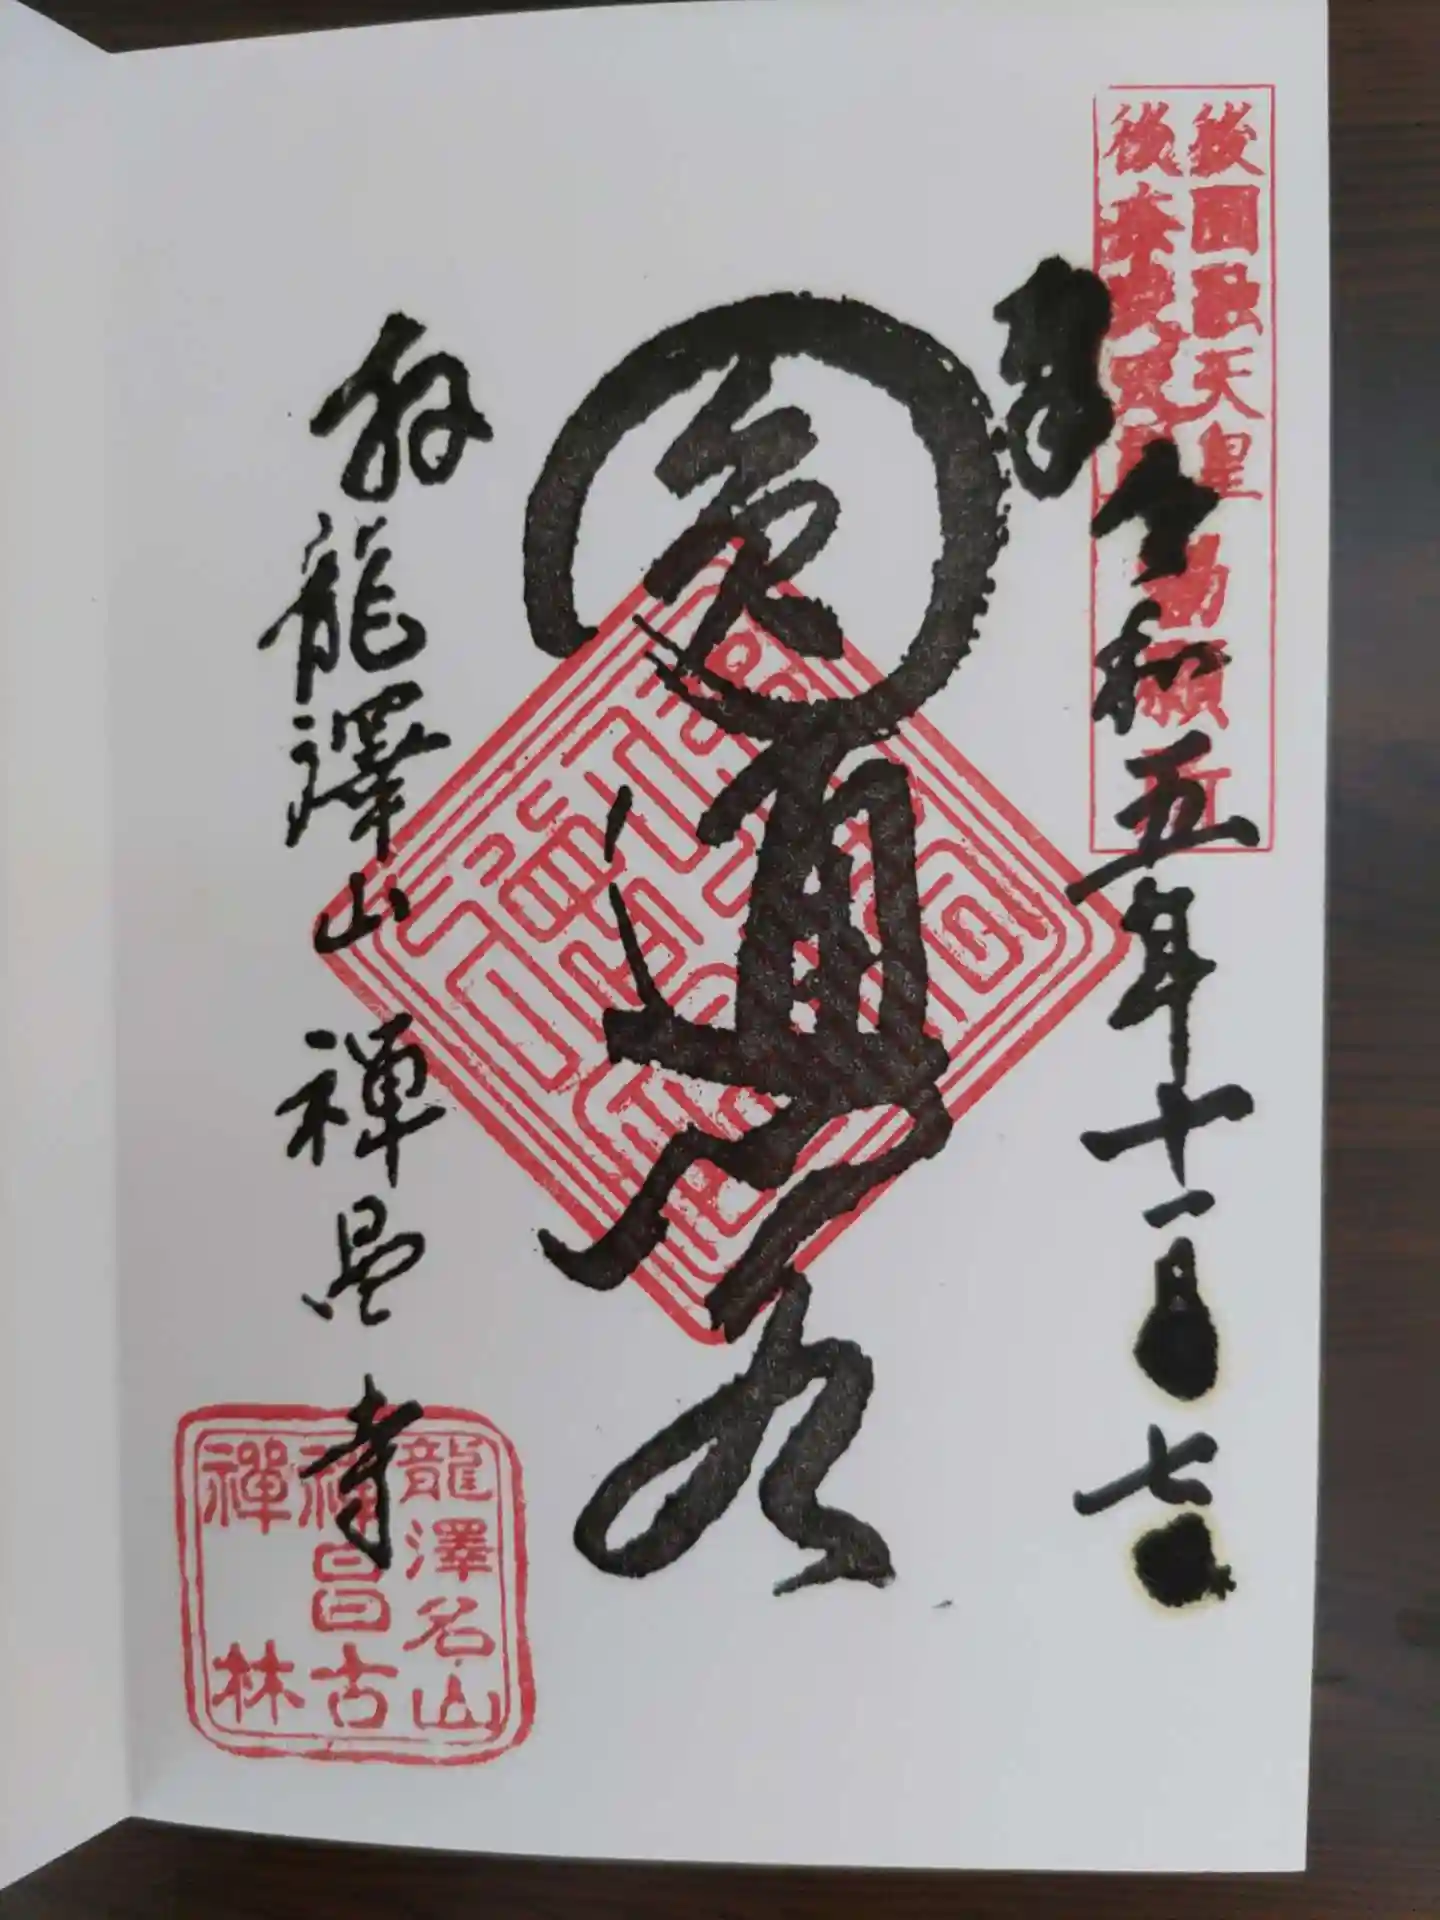 後圓融天皇
後奈良天皇
勅願所
奉拝
令和五年十一月七日
圓通閣
龍澤山 禅昌寺
龍澤名山
禅昌古
禪林